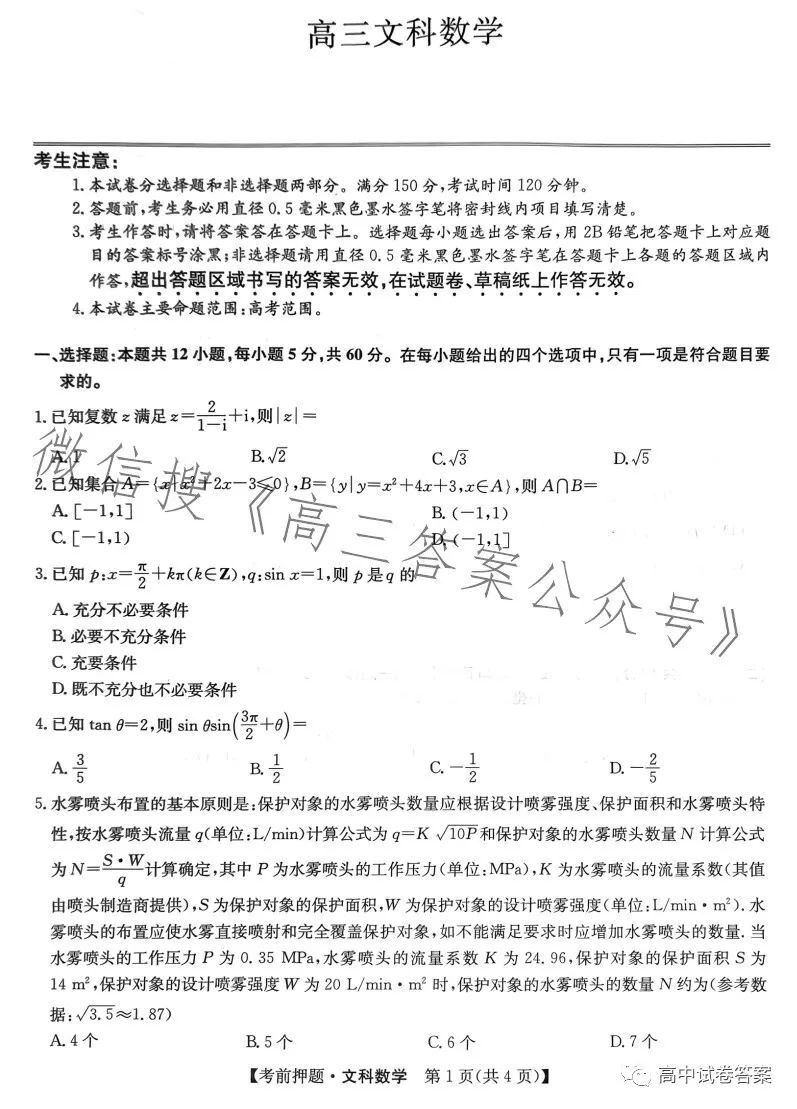 高三文科数学
考生注意:
1. 本试卷分选择题和非选择题两部分。满分 150 分,考试时间 120 分钟。
2. 答题前,考生务必用直径 0.5 毫米黑色墨水签字笔将密封线内项目填写清楚。
3. 考生作答时,请将答案答在答题卡上。选择题每小题选出答案后,用 2B 铅笔把答题卡上对应题
目的答案标号涂黑;非选择题请用直径 0.5 毫米黑色墨水签字笔在答题卡上各题的答题区域内
作答,超出答题区域书写的答案无效,在试题卷、草稿纸上作答无效。
4. 本试卷主要命题范围:高考范围。
一、选择题:本题共 12 小题,每小题 5 分,共 60 分。在每小题给出的四个选项中,只有一项是符合题目要
求的。
1. 已知复数 z 满足 z=2/(1-i)+i,则|z|=
A. 1 B. √2 C. √3 D. √5
2. 已知集合 A={x|x²+2x-3≤0},B={y|y=x²+4x+3,x∈A},则 A∩B=
A. [-1,1] B. (-1,1)
C. [-1,1) D. (-1,1]
3. 已知 p:x=π/2+kπ(k∈Z),q:sin x=1,则 p 是 q 的
A. 充分不必要条件
B. 必要不充分条件
C. 充要条件
D. 既不充分也不必要条件
4. 已知 tan θ=2,则 sin θsin(3π/2+θ)=
A. 3/5 B. 1/2 C. -1/2 D. -2/5
5. 水雾喷头布置的基本原则是:保护对象的水雾喷头数量应根据设计喷雾强度、保护面积和水雾喷头特
性,按水雾喷头流量 q(单位:L/min)计算公式为 q=K √10P 和保护对象的水雾喷头数量 N 计算公式
为 N=S·W/q 计算确定,其中 P 为水雾喷头的工作压力(单位:MPa),K 为水雾喷头的流量系数(其值
由喷头制造商提供),S 为保护对象的保护面积,W 为保护对象的设计喷雾强度(单位:L/min·m²). 水
雾喷头的布置应使水雾直接喷射和完全覆盖保护对象,如不能满足要求时应增加水雾喷头的数量. 当
水雾喷头的工作压力 P 为 0.35 MPa,水雾喷头的流量系数 K 为 24.96,保护对象的保护面积 S 为
14 m²,保护对象的设计喷雾强度 W 为 20 L/min·m² 时,保护对象的水雾喷头的数量 N 约为(参考数
据:√3.5≈1.87)
A. 4 个 B. 5 个 C. 6 个 D. 7 个
【考前押题·文科数学 第 1 页(共 4 页)】
高中试卷答案
微信搜《高三答案公众号》